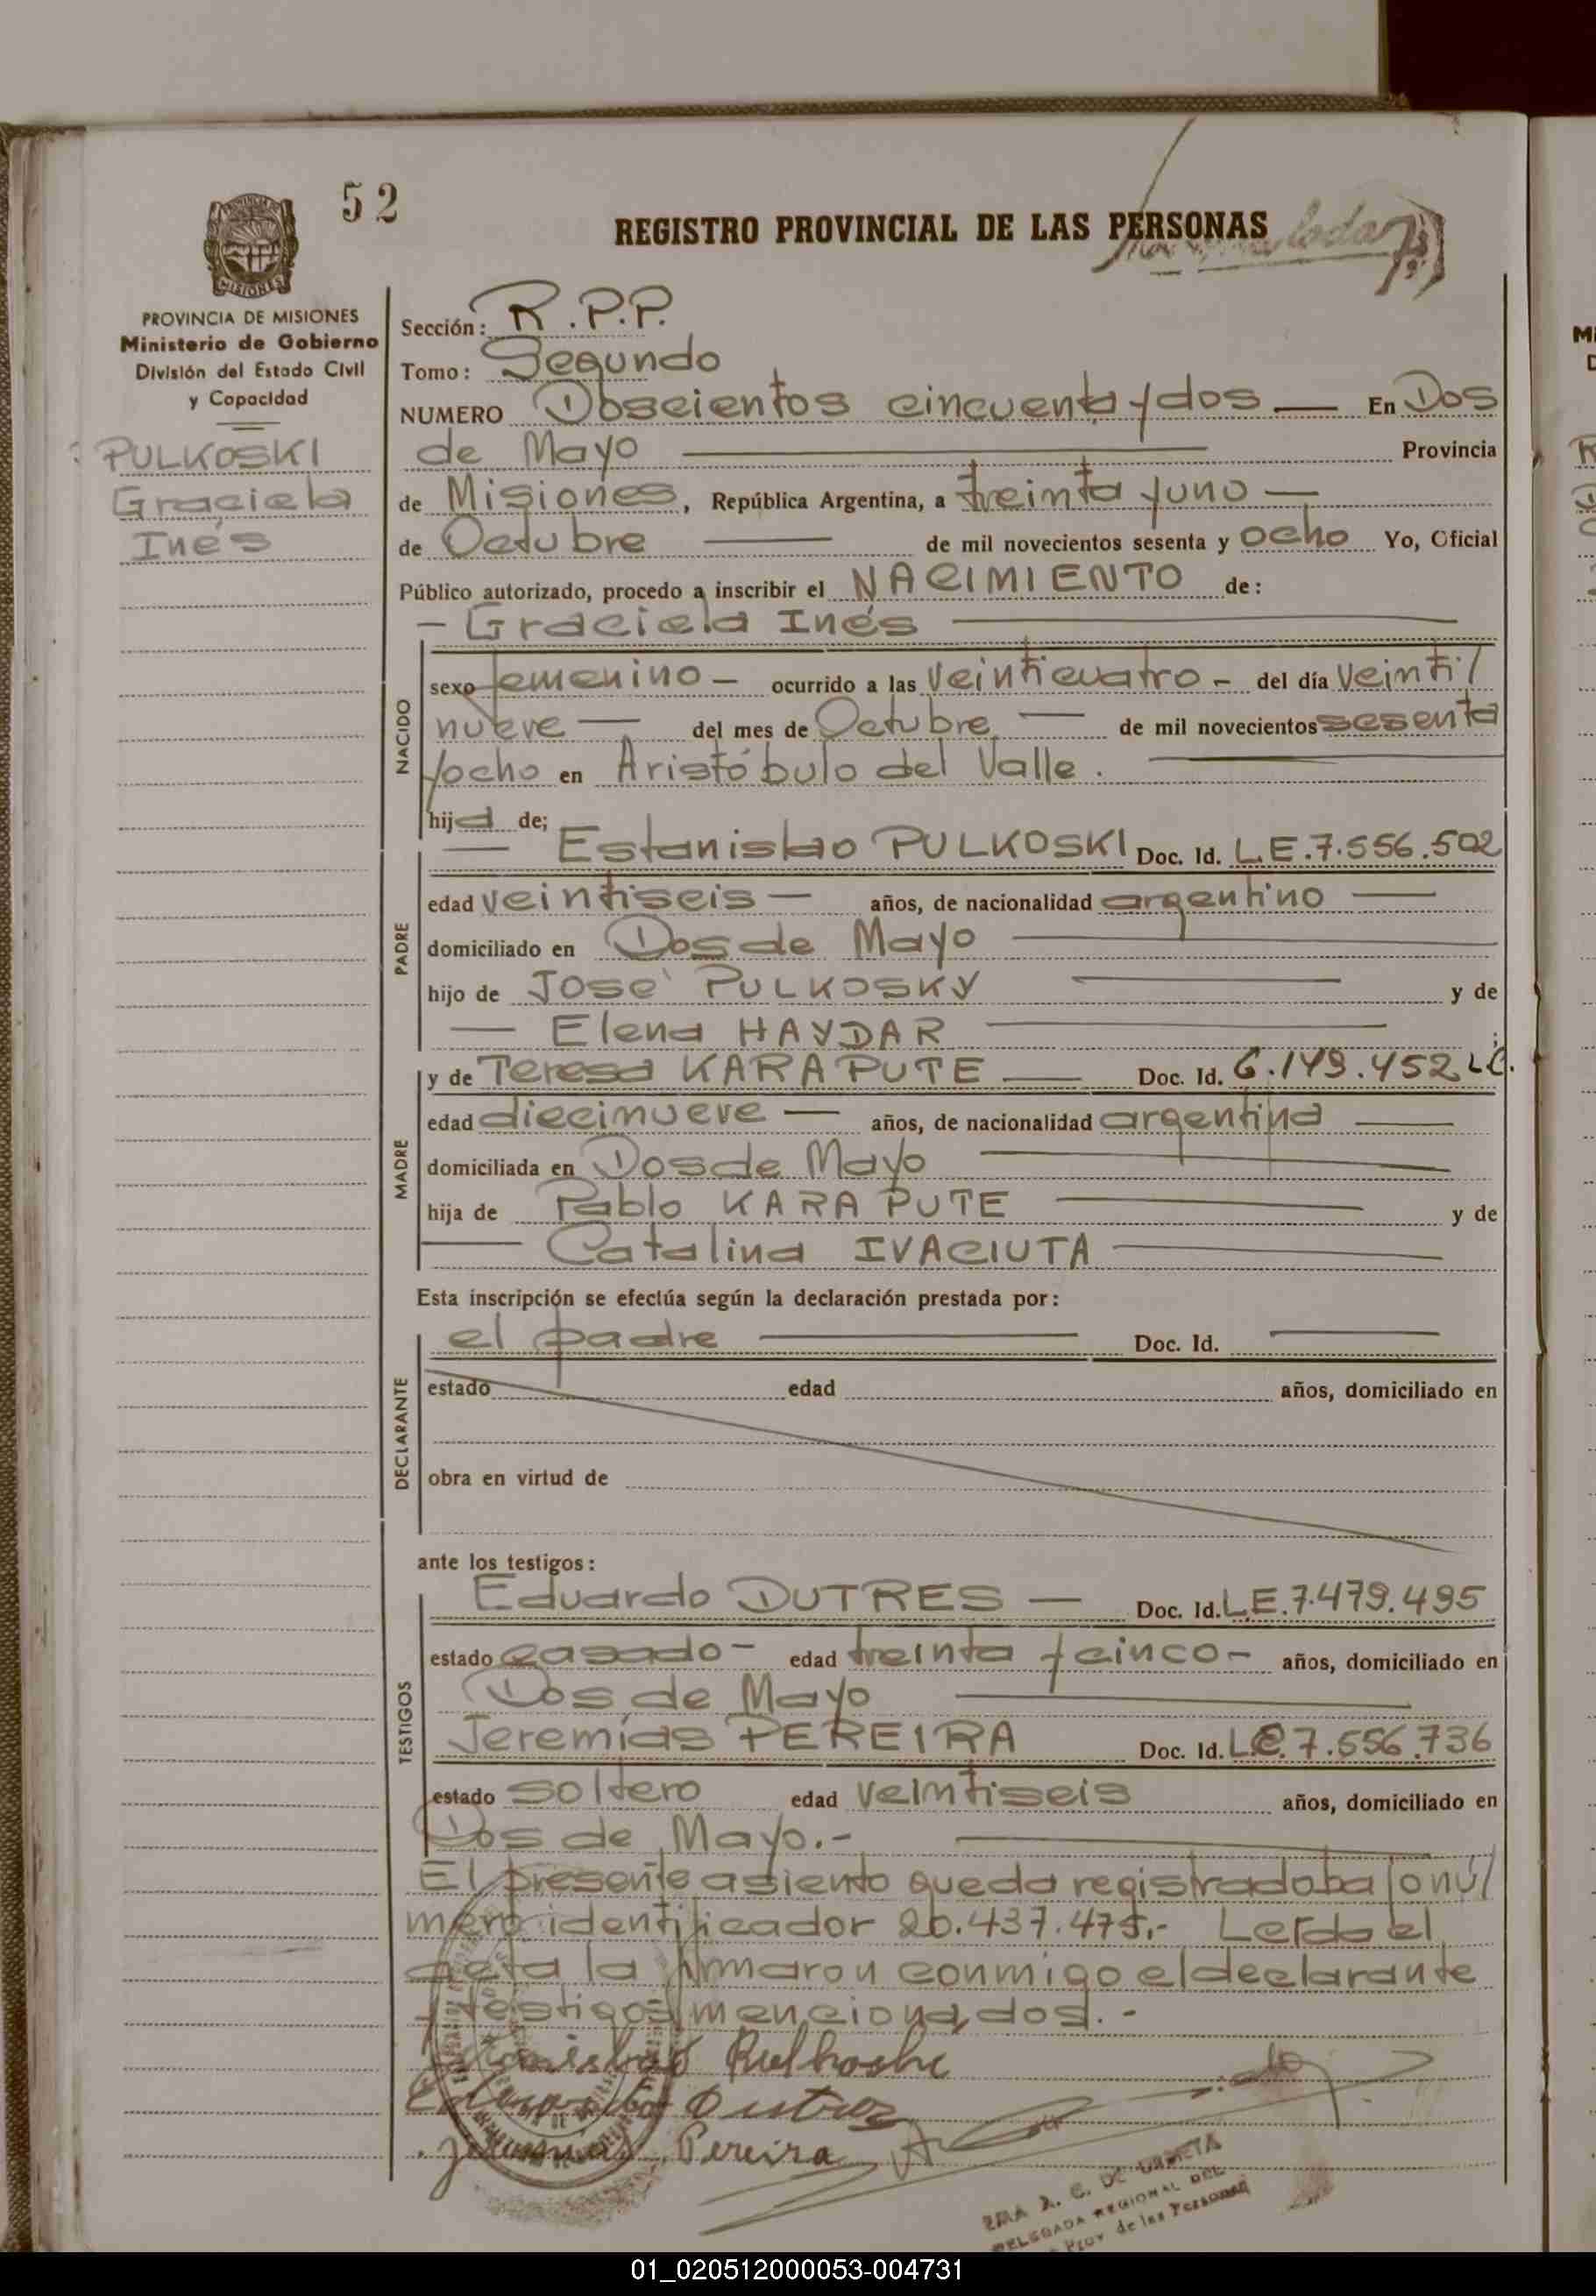 52
REGISTRO PROVINCIAL DE LAS PERSONAS
PROVINCIA DE MISIONES
Ministerio de Gobierno
División del Estado Civil
y Capacidad
PULKOSKI
Graciela
Inés
Sección: R.P.P.
Tomo: Segundo
NUMERO Doscientos cincuenta y dos — En Dos
de Mayo — Provincia
de Misiones, República Argentina, a treinta y uno —
de Octubre — de mil novecientos sesenta y ocho Yo, Oficial
Público autorizado, procedo a inscribir el NACIMIENTO de:
- Graciela Inés —
NACIDO
sexo femenino - ocurrido a las veinticuatro - del día veinti/
nueve — del mes de Octubre — de mil novecientos sesenta
y ocho en Aristóbulo del Valle. —
hija de;
— Estanislao PULKOSKI Doc. Id. L.E.7.556.502
PADRE
edad veintiseis — años, de nacionalidad argentino —
domiciliado en Dos de Mayo —
hijo de José PULKOSKY — y de
— Elena HAYDAR —
MADRE
y de Teresa KARAPUTE — Doc. Id. 6.149.452 L.C.
edad diecinueve — años, de nacionalidad argentina —
domiciliada en Dos de Mayo —
hija de Pablo KARAPUTE — y de
— Catalina IVACIUTA —
Esta inscripción se efectúa según la declaración prestada por:
DECLARANTE
el padre — Doc. Id. —
estado edad años, domiciliado en
obra en virtud de
ante los testigos:
TESTIGOS
Eduardo DUTRES — Doc. Id. L.E.7.479.495
estado casado - edad treinta y cinco - años, domiciliado en
Dos de Mayo —
Jeremías PEREIRA Doc. Id. L.E.7.556.736
estado soltero edad veintiseis años, domiciliado en
Dos de Mayo.- —
El presente asiento queda registrado bajo nú/
mero identificador 20.437.475.- Leída el
acta la firmaron conmigo el declarante
y testigos mencionados.-
Estanislao Pulkoski
Eduardo Dutres
Jeremías Pereira
A. C. DE URRETA
DELEGADA REGIONAL DEL
Prov de las Personas
01_020512000053-004731